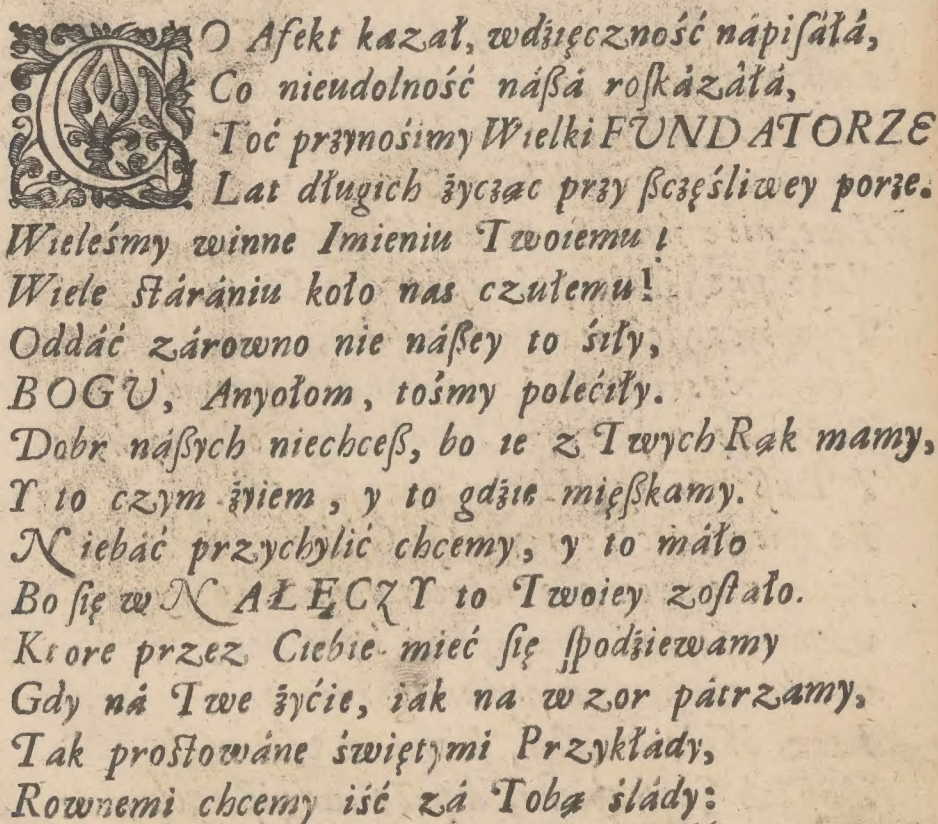 CO Afekt kazał, wdźięczność nápiſáłá,
Co nieudolność náßá roſkázáłá,
Toć przynośimy Wielki FUNDATORZE
Lat długich życząc przy ſzczęśliwey porze.
Wieleśmy winne Imieniu Twoiemu!
Wiele ſtárániu koło nas czułemu!
Oddáć zárowno nie náßey to śiły,
BOGU, Anyołom, tośmy polećiły.
Dobr náßych niechceß, bo ie z Twych Rąk mamy,
Y to czym żyiem, y to gdźie mięßkamy.
Niebáć przychylić chcemy, y to máło
Bo ſię w NAŁĘCZY to Twoiey zoſtało.
Ktore przez Ciebie mieć ſię ſpodźiewamy
Gdy ná Twe żyćie, iak na wzor pátrzamy,
Tak proſtowáne świętymi Przykłády,
Rownemi chcemy iść zá Tobą slády: